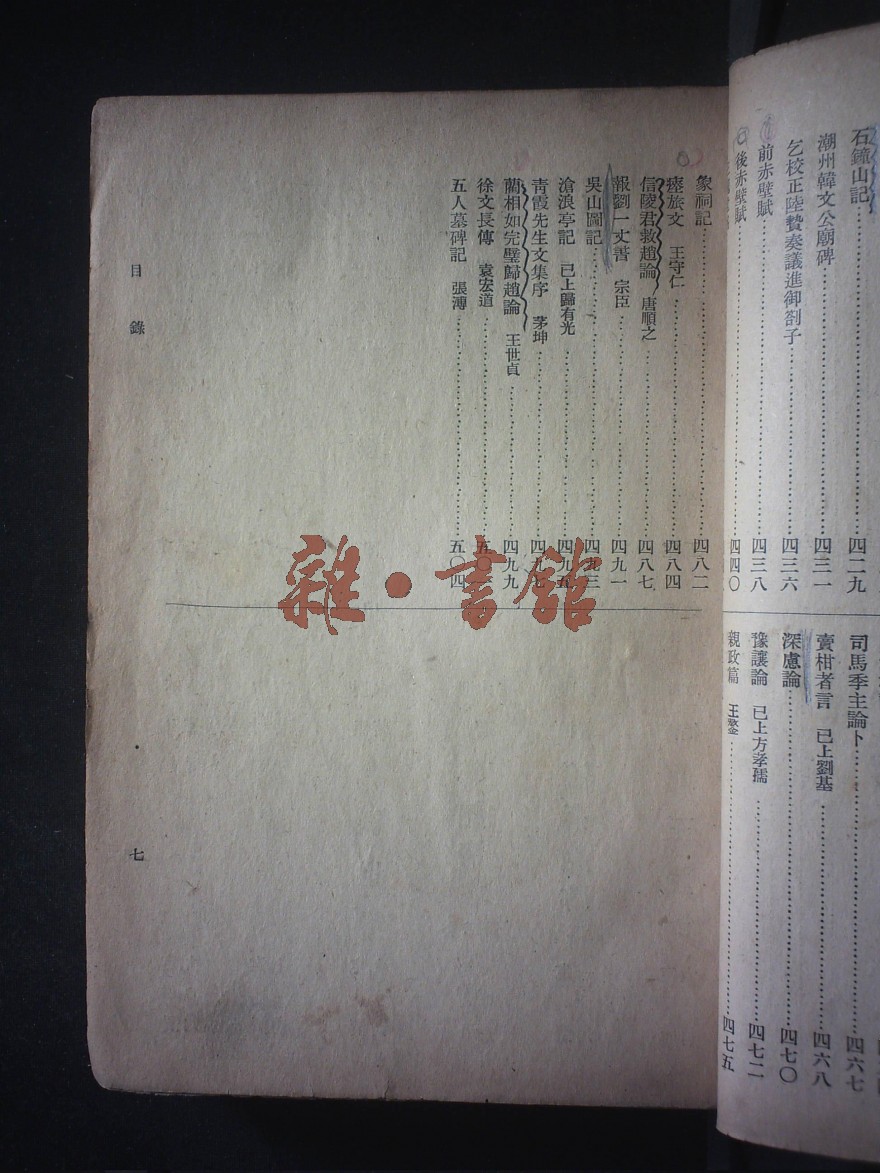 石鐘山記 四二九
潮州韓文公廟碑 四三一
乞校正陸贄奏議進御劄子 四三六
前赤壁賦 四三八
後赤壁賦 四四〇
司馬季主論卜 四六七
賣柑者言 已上劉基 四六八
深慮論 四七〇
豫讓論 已上方孝孺 四七二
親政篇 王鏊 四七五
象祠記 四八二
瘞旅文 王守仁 四八四
信陵君救趙論 唐順之 四八七
報劉一丈書 宗臣 四九一
吳山圖記 四九三
滄浪亭記 已上歸有光 四九五
青霞先生文集序 茅坤 四九七
藺相如完璧歸趙論 王世貞 四九九
徐文長傳 袁宏道 五〇
五人墓碑記 張溥 五〇四
目錄
七
雜·書館